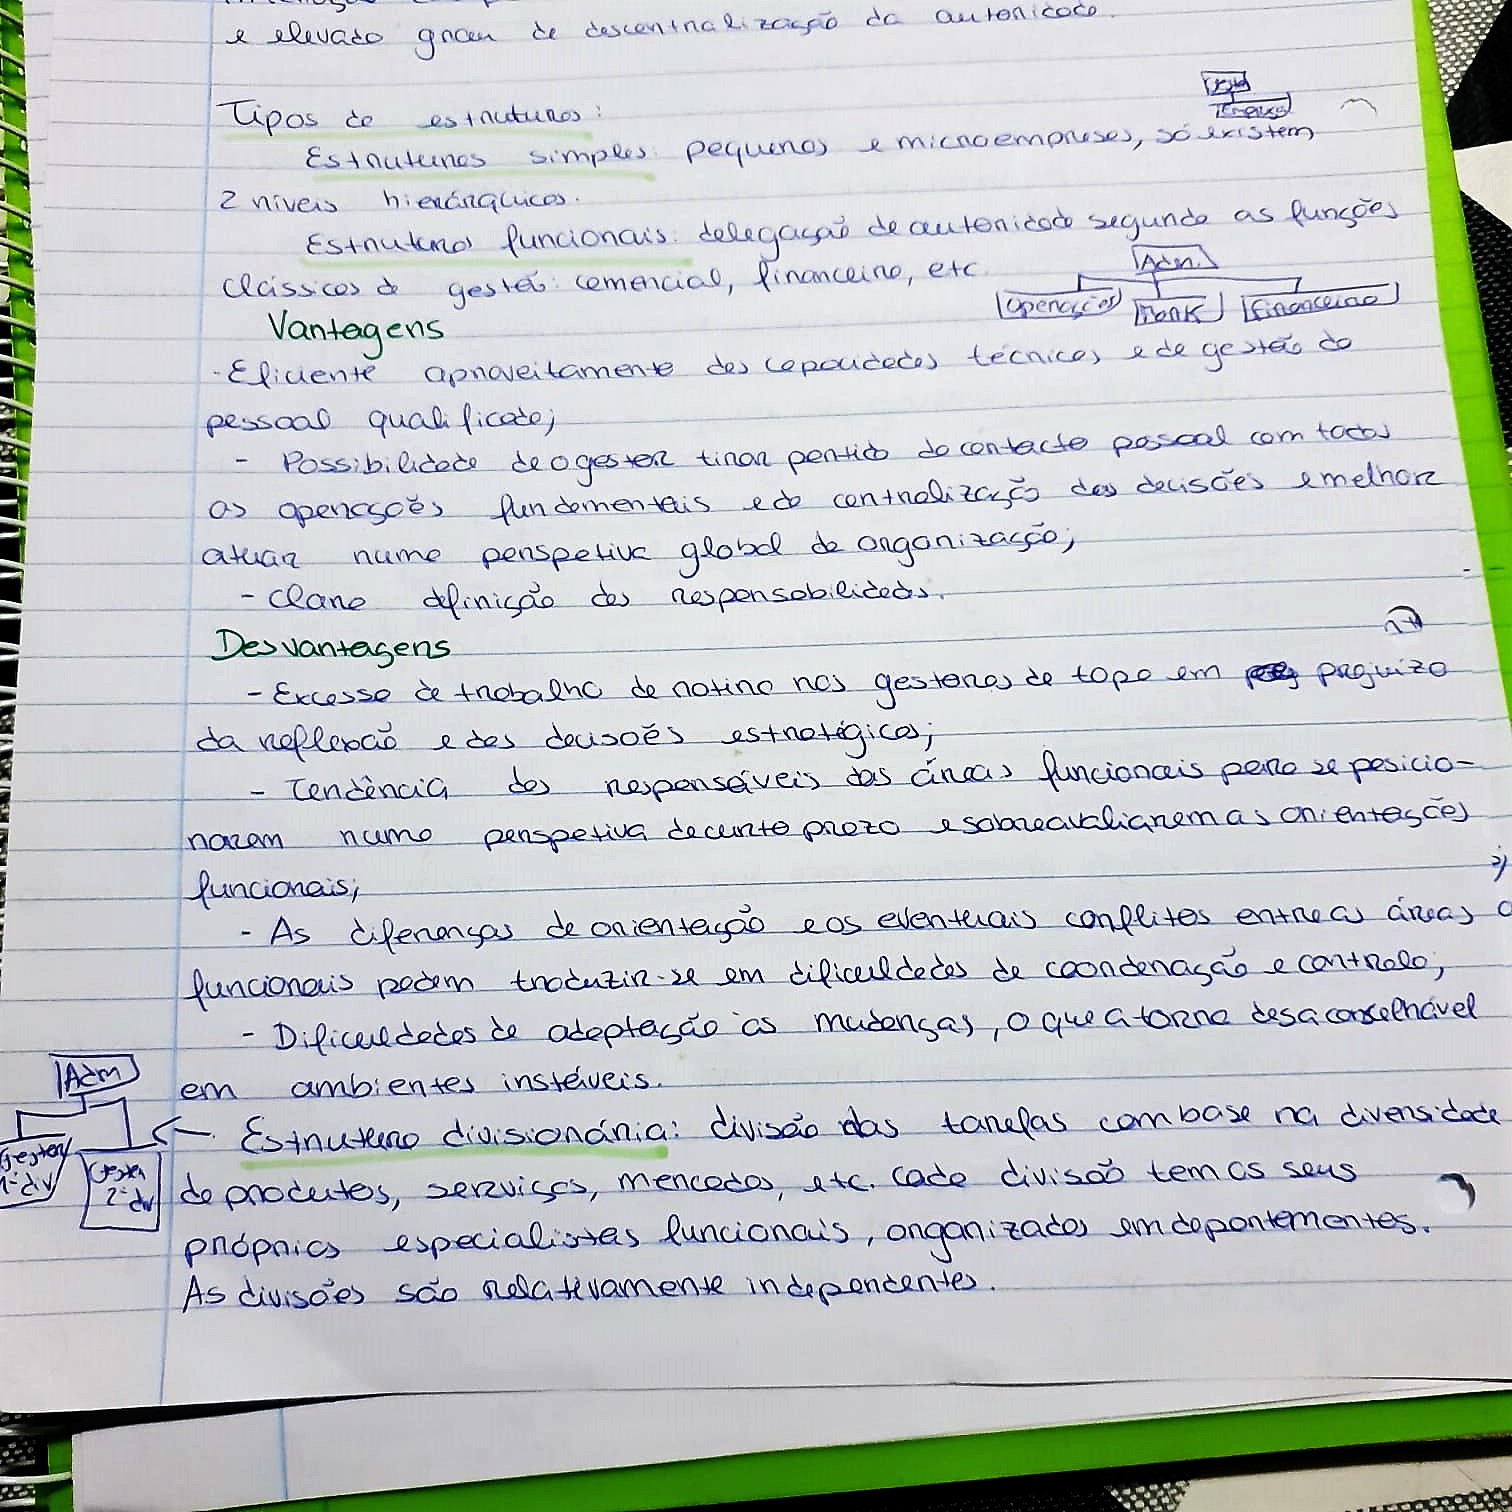 e elevado grau de descentralização da autoridade.
Tipos de estruturas:
Estruturas simples: pequenas e microempresas, só existem
2 níveis hierárquicos.
Estruturas funcionais: delegação de autoridade segundo as funções
clássicas de gestão: comercial, financeira, etc.
Adm.
Operações Mark Financeira
Vantagens
- Eficiente aproveitamento das capacidades técnicas e de gestão do
pessoal qualificado;
- Possibilidade de o gestor tirar partido do contacto pessoal com todas
as operações fundamentais e da centralização das decisões e melhor
atuar numa perspetiva global da organização;
- Clara definição das responsabilidades.
Desvantagens
- Excesso de trabalho de rotina nos gestores de topo em prejuízo
da reflexão e das decisões estratégicas;
- Tendência dos responsáveis das áreas funcionais para se posicio-
narem numa perspetiva de curto prazo e sobreavaliarem as orientações
funcionais;
- As diferenças de orientação e os eventuais conflitos entre as áreas
funcionais podem traduzir-se em dificuldades de coordenação e controlo;
- Dificuldades de adaptação às mudanças, o que a torna desaconselhável
em ambientes instáveis.
Adm
Gestor 1ª div
Gestor 2ª div
Estrutura divisionária: divisão das tarefas com base na diversidade
de produtos, serviços, mercados, etc. Cada divisão tem os seus
próprios especialistas funcionais, organizados em departamentos.
As divisões são relativamente independentes.